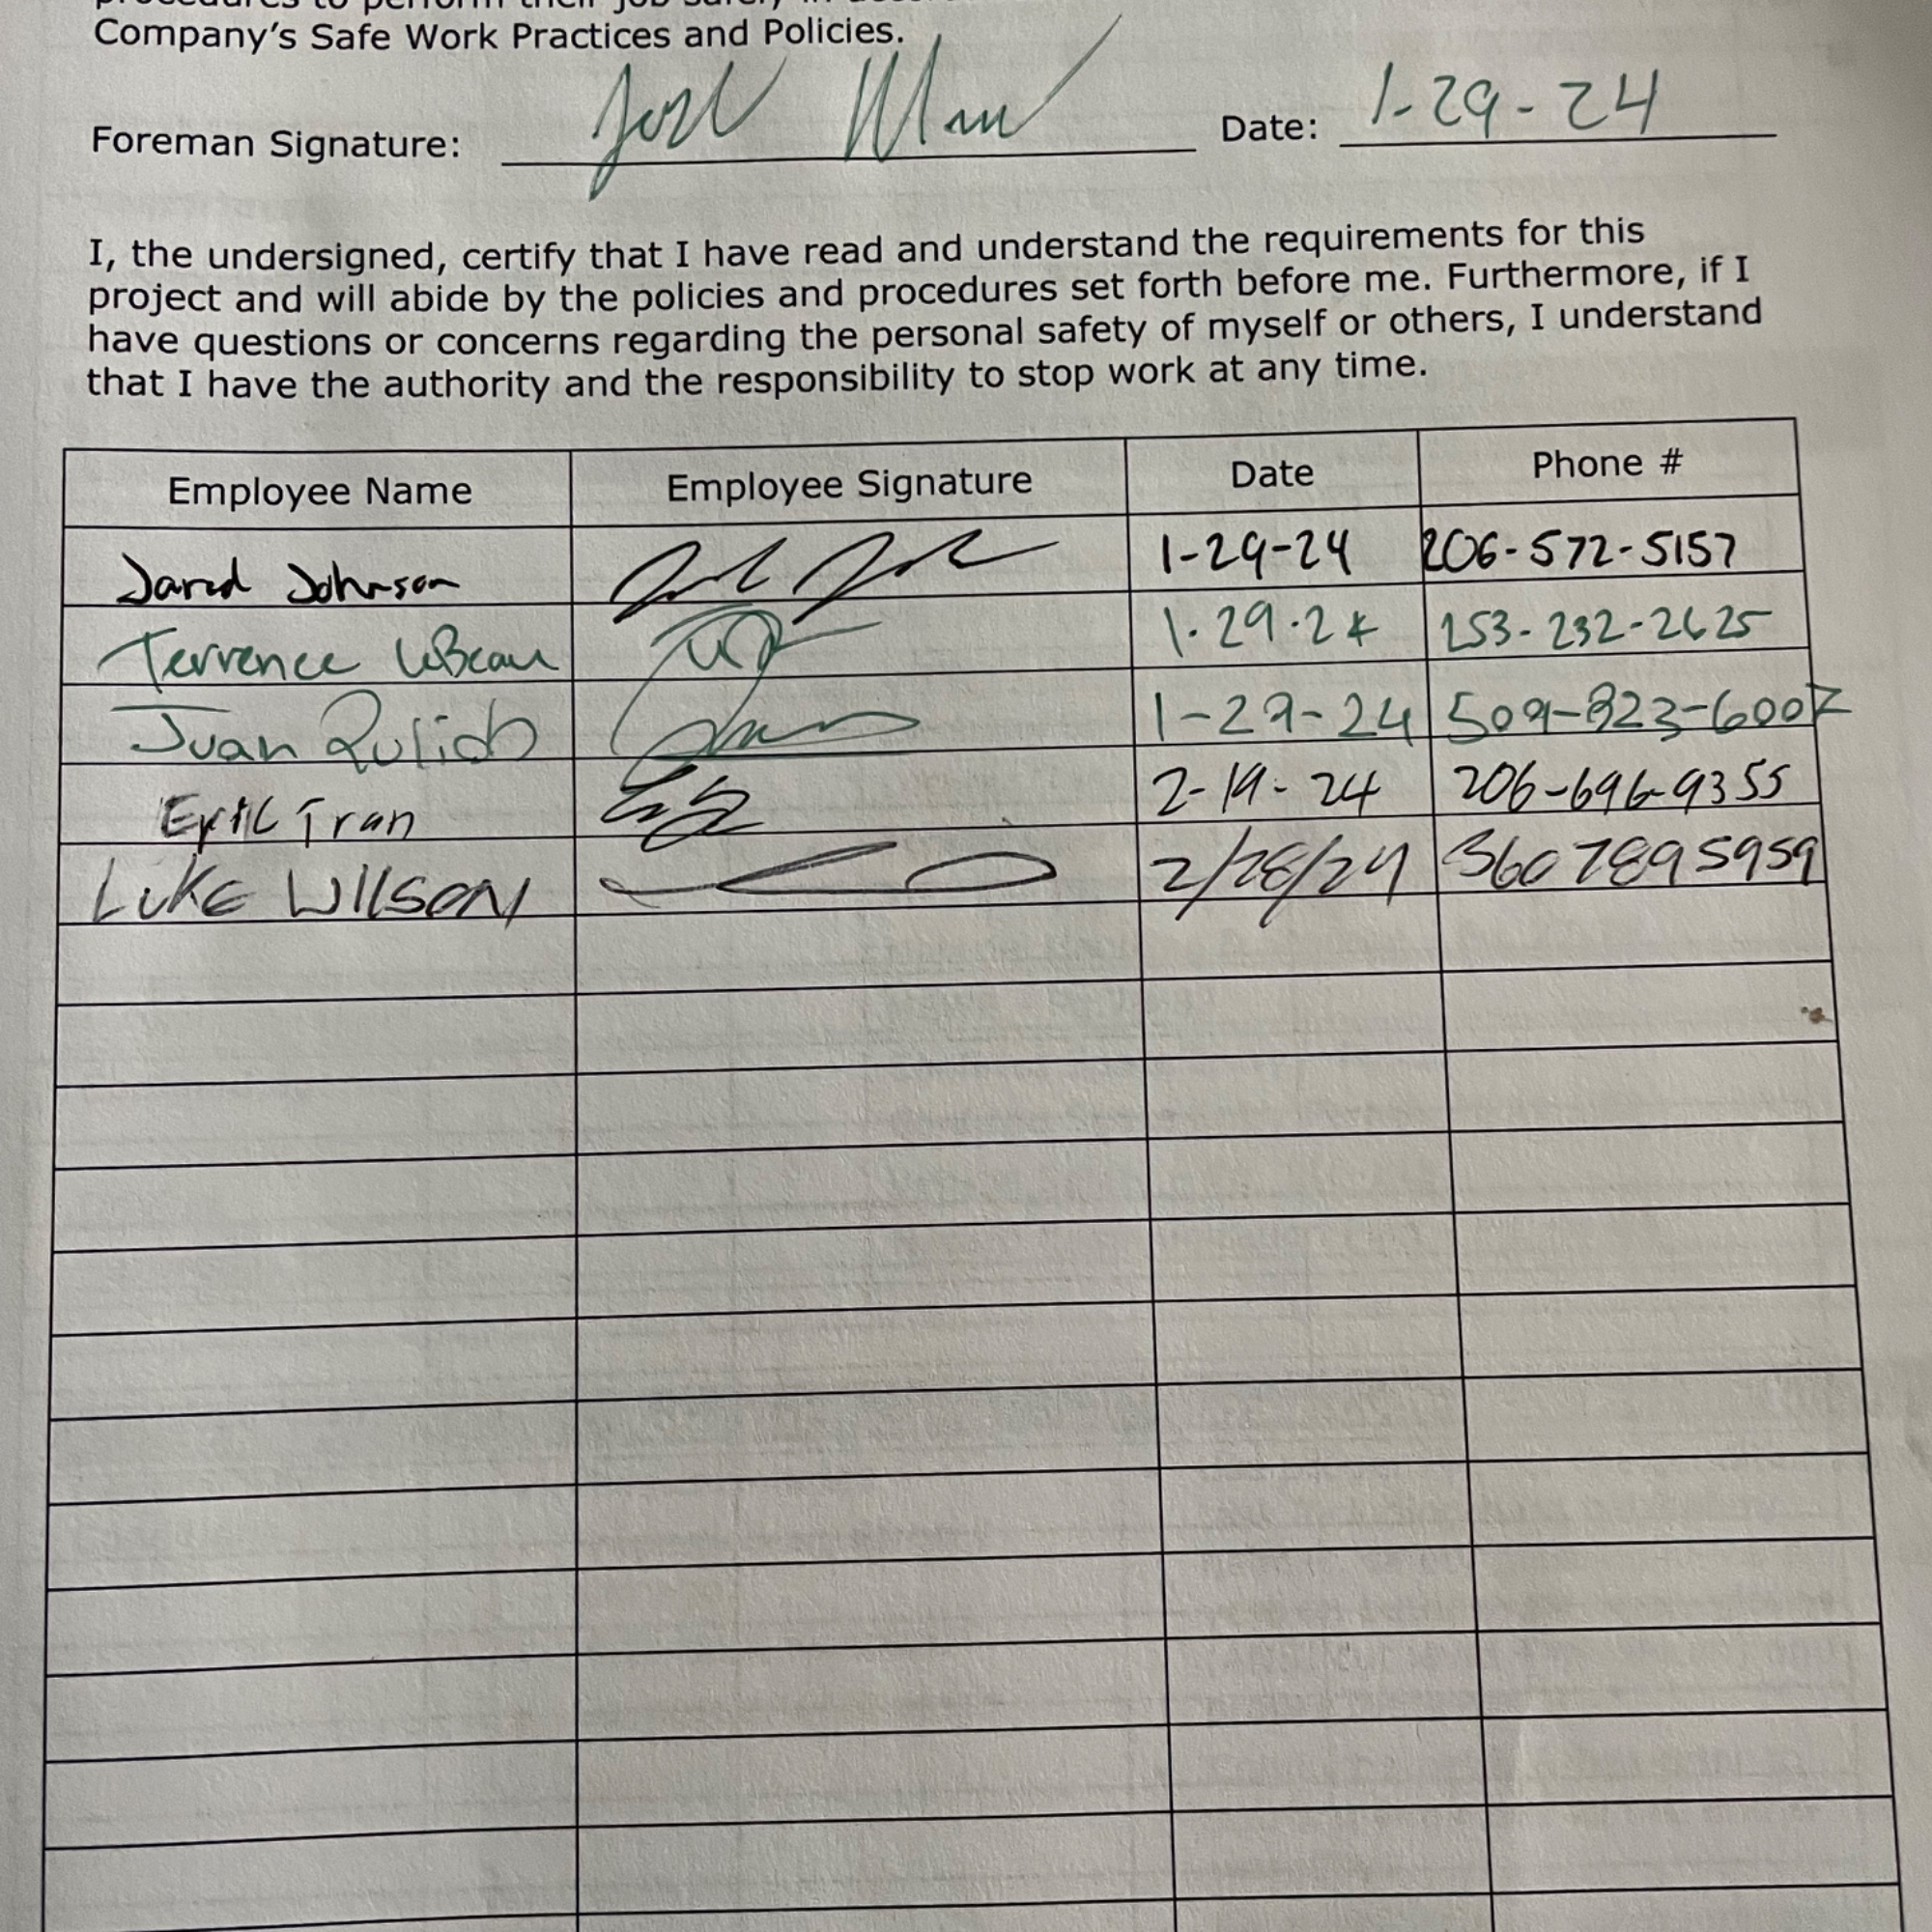 Company's Safe Work Practices and Policies.
Foreman Signature: Date: 1-29-24
I, the undersigned, certify that I have read and understand the requirements for this
project and will abide by the policies and procedures set forth before me. Furthermore, if I
have questions or concerns regarding the personal safety of myself or others, I understand
that I have the authority and the responsibility to stop work at any time.
Employee Name Employee Signature Date Phone #
Jared Johnson 1-29-24 206-572-5157
Terrence LeBeau 1.29.24 253-232-2625
Juan 1-29-24
Eric Tran 2-19-24 206-696-9355
LUKE WILSON 2/28/24 3607895959